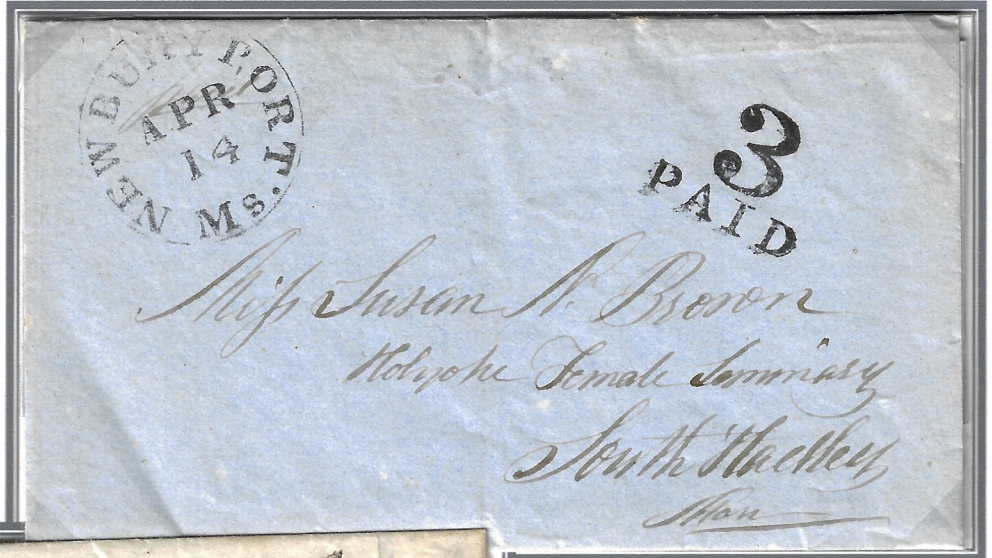 NEWBURYPORT. Ms.
APR
14
3
PAID
Miss Susan N. Brown
Holyoke Female Seminary
South Hadley
Mass